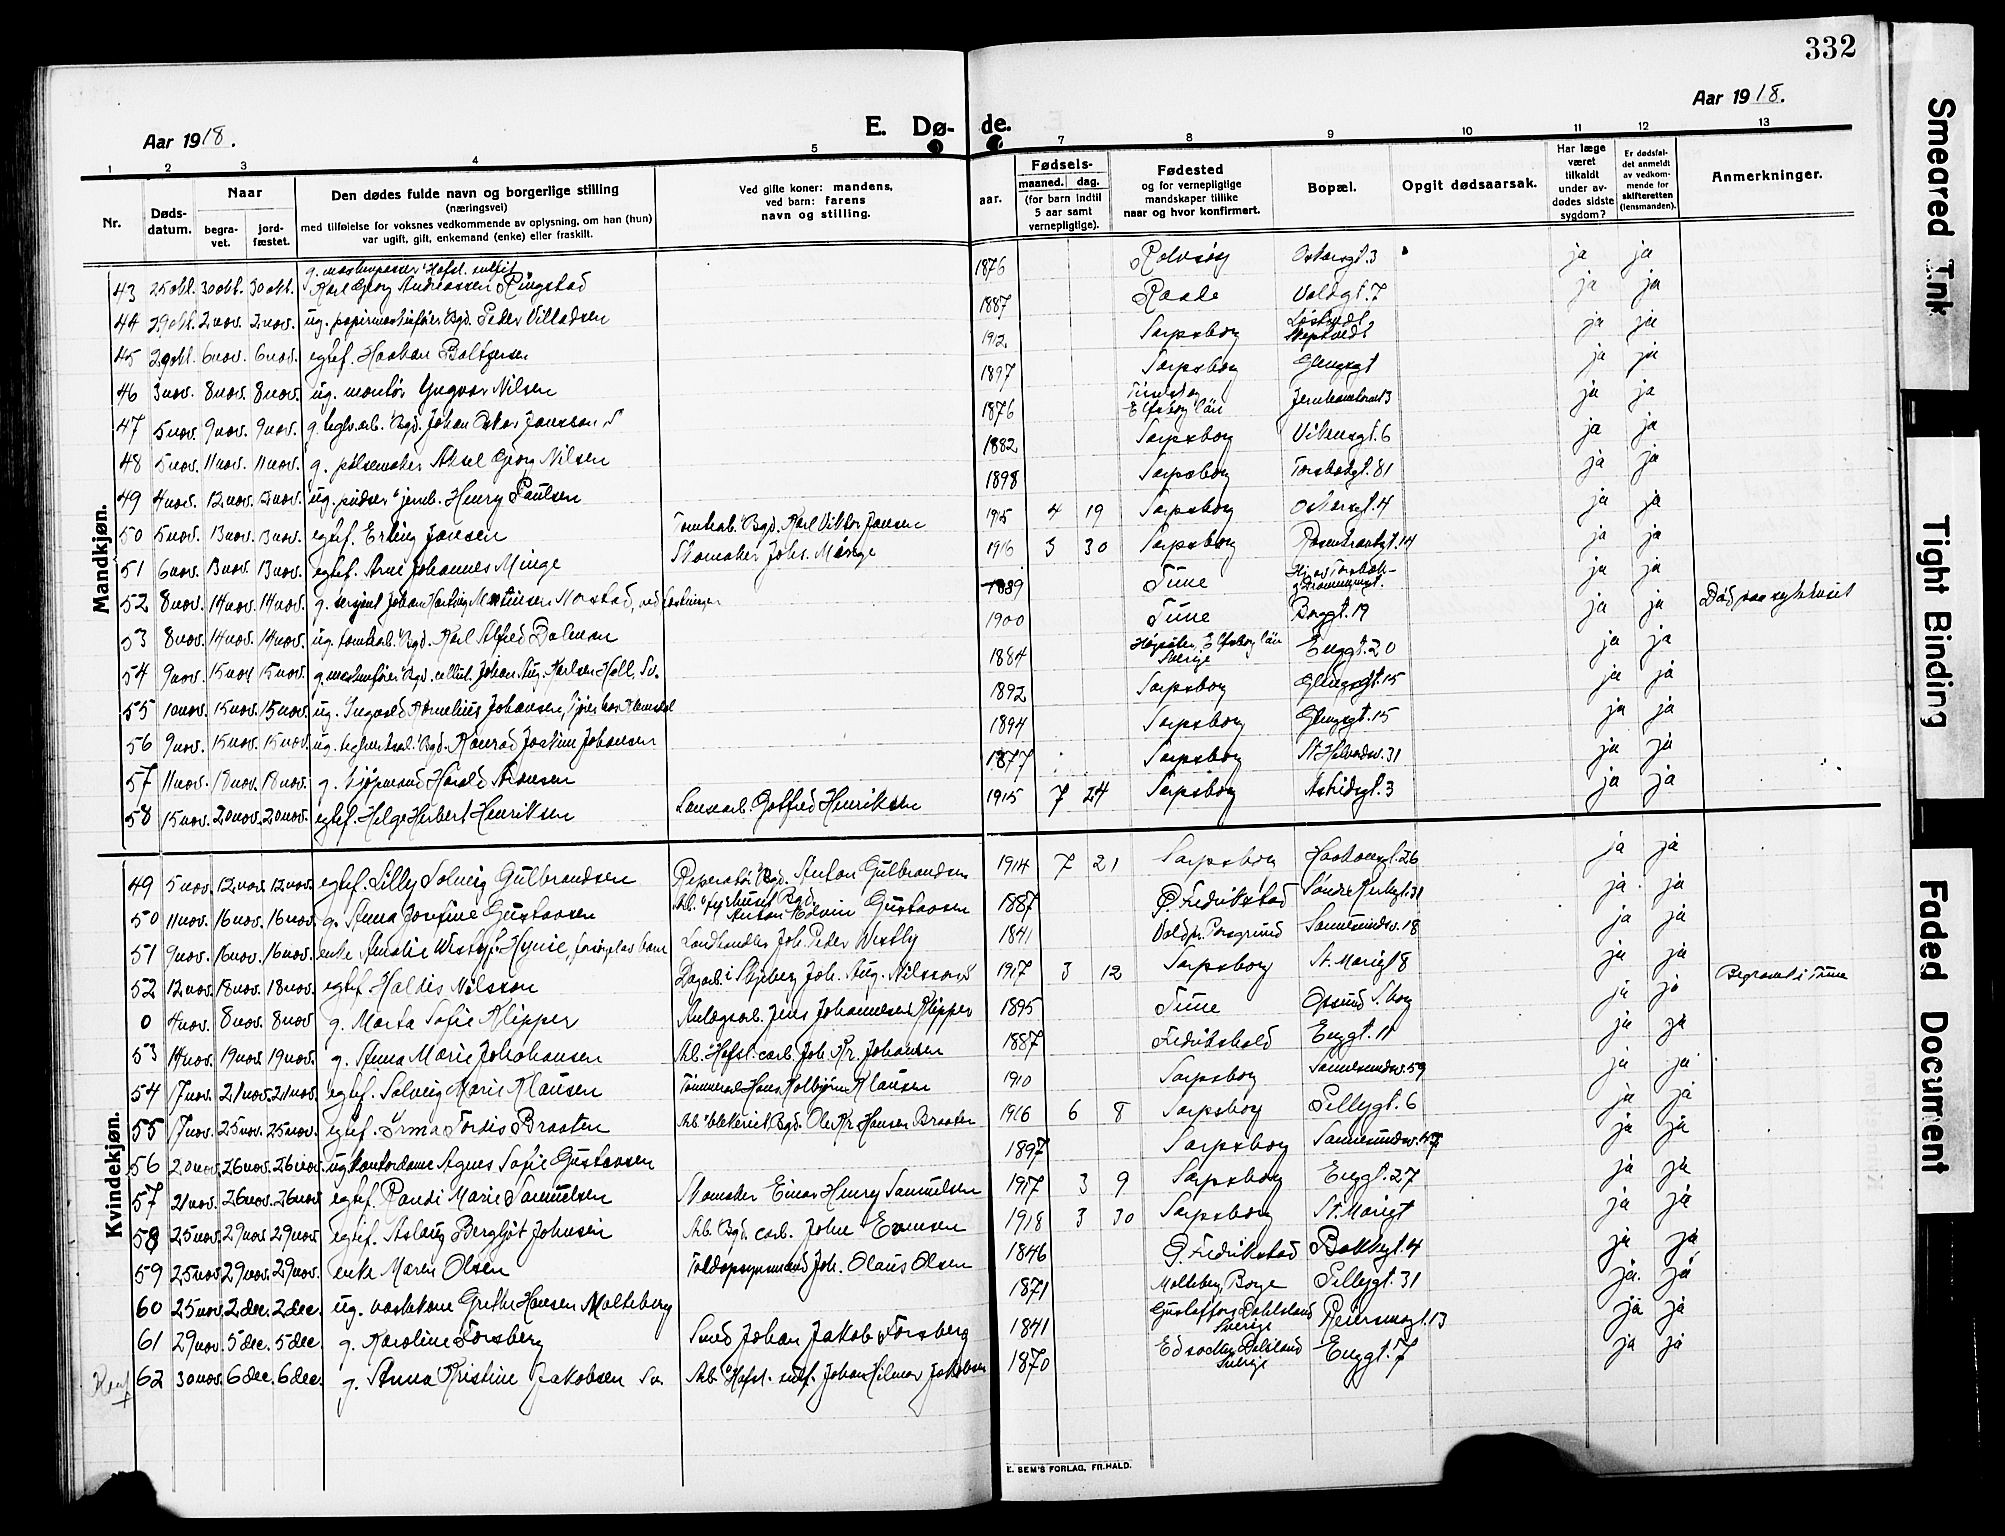 332
Aar 1918.
Aar 1918.
E. Dø- de.
1 2 3 4 5 7 8 9 10 11 12 13
Nr.
Døds-datum.
Naar
begra-vet.
jord-fæstet.
Den dødes fulde navn og borgerlige stilling
(næringsvei)
med tilføielse for voksnes vedkommende av oplysning, om han (hun)
var ugift, gift, enkemand (enke) eller fraskilt.
Ved gifte koner: mandens,
ved barn: farens
navn og stilling.
Fødsels-
aar.
maaned. dag.
(for barn indtil
5 aar samt
vernepligtige).
Fødested
og for vernepligtige
mandskaper tillike
naar og hvor konfirmert.
Bopæl.
Opgit dødsaarsak.
Har læge
været
tilkaldt
under av-
dødes sidste
sygdom?
Er dødsfal-
det anmeldt
av vedkom-
mende for
skifteretten
(lensmanden).
Anmerkninger.
Mandkjøn.
43 25 okt. 30 okt. 30 okt. Karl Georg Andreassen Ringstad 1876 Rolvsøy Oskarsgt. 3 ja ja
44 29 okt. 2 nov. 2 nov. ug. papirmaskinfører Bgd. Peder Villadsen 1887 Raade Voldgt. 7 ja ja
45 29 okt. 6 nov. 6 nov. egtef. Haakon Baltzersen 1912. Sarpsborg ja ja
46 3 nov. 8 nov. 8 nov. ug. montør Yngvar Nilsen 1897 Sarpsborg Glengsgt ja ja
47 5 nov. 9 nov. 9 nov. g. Bgd. Johan Oskar Jonsson 1876 Elfsborg län ja ja
48 5 nov. 11 nov. 11 nov. g. pølsemaker Aksel Georg Nilsen 1882 Sarpsborg Vikensgt. 6 ja ja
49 4 nov. 12 nov. 12 nov. ug. pudser jernb. Henry Paulsen 1898 Sarpsborg Torsbekgt. 81 ja ja
50 5 nov. 13 nov. 13 nov. egtef. Erling Jansen Tomtearb. Bgd. Karl Viktor Jansen 1915 4 19 Sarpsborg Oskarsgt. 4 ja ja
51 6 nov. 13 nov. 13 nov. egtef. Arne Johannes Minge Skomaker Johs. Minge 1916 3 30 Sarpsborg Rosenkrantzgt. 14 ja ja
52 8 nov. 14 nov. 14 nov. g. sersjant Johan Hartvig Martinsen Norstad, ved festningen 1889 Tune ja ja
53 8 nov. 14 nov. 14 nov. ug. tomtearb. Bgd. Karl Alfred Dalman 1900 Tune Borggt. 19 ja ja Død paa sykehuset
54 9 nov. 15 nov. 15 nov. g. maskinfører Bgd. cellul. Johan Aug. Karlsen Hall, Sv. 1884 Högsäter, Elfsborg län Sverige Enggt. 20 ja ja
55 10 nov. 15 nov. 15 nov. ug. Ingvald Kornelius Johansen, 1892 Sarpsborg Glengsgt. 15 ja ja
56 9 nov. 15 nov. 15 nov. ug. Bgd. Konrad Joakim Johansen 1894 Sarpsborg Glengsgt. 15 ja ja
57 11 nov. 18 nov. 18 nov. g. kjøpmand Harald Aronsen 1877 Sarpsborg St. Halvardsv. 31 ja ja
58 15 nov. 20 nov. 20 nov. egtef. Helge Herbert Henriksen Gotfred Henriksen 1915 7 24 Sarpsborg Astridsgt. 3 ja ja
Kvindekjøn.
49 5 nov. 12 nov. 12 nov. egtef. Lilly Solveig Gulbrandsen Reperatør Bgd. Anton Gulbrandsen 1914 7 21 Sarpsborg Haakonsgt. 26 ja ja
50 11 nov. 16 nov. 16 nov. g. Anna Josefine Gustavsen Arb. fyrhuset Bgd. Anton Edvin Gustavsen 1887 G. Fredrikstad Søndre Kirkegt. 31 ja ja
51 9 nov. 16 nov. 16 nov. enke Amalie Westby f. Hynie, Landhandler Joh. Peter Westby 1841 Porsgrund Sannesundsv. 18 ja ja
52 12 nov. 18 nov. 18 nov. egtef. Haldis Nilsson Dagarb. i Skjeberg Joh. Aug. Nilsson 1917 3 12 Sarpsborg St. Mariegt. 8 ja ja Begravet i Tune
0 4 nov. 8 nov. 8 nov g. Marta Sofie Klipper Anlægsarb. Jens Johannesen Klipper 1895 Tune Opsund S.borg ja ja
53 14 nov. 19 nov. 19 nov. g. Anna Marie Johansen Arb. Hafsl. carb. Joh. Kr. Johansen 1887 Fredrikshald Enggt. 11 ja ja
54 17 nov. 21 nov. 21 nov. egtef. Solveig Marie Klausen Hans Kolbjørn Klausen 1910 Sarpsborg Sannesundsv. 59 ja ja
55 17 nov. 25 nov. 25 nov. egtef. Irma Tordis Braaten Arb. Bgd. Ole Kr. Hansen Braaten 1916 6 8 Sarpsborg Pellygt. 6 ja ja
56 20 nov. 26 nov. 26 nov ug. kontordame Agnes Sofie Gustavsen 1897 Sarpsborg Sannesundsv. 47 ja ja
57 21 nov. 26 nov. 26 nov egtef. Randi Marie Samuelsen Skomaker Einar Henry Samuelsen 1917 3 9 Sarpsborg Enggt. 27 ja ja
58 25 nov. 29 nov 29 nov. egtef. Aslaug Bergljot Johnsen Arb. Bgd. carb. John Evensen 1918 3 30 Sarpsborg St. Mariegt ja ja
59 25 nov 29 nov. 29 nov. enke Maren Olsen Toldopsynsmand Joh. Olaus Olsen 1846 G. Fredrikstad Bakkegt. 4 ja ja
60 25 nov. 2 dec. 2 dec. ug. vaskekone Grethe Hansen Molteberg 1871 Molteberg, Borge Pellygt. 31 ja ja
61 29 nov. 5 dec. 5 dec g. Karoline Forsberg Smed Johan Jakob Forsberg 1841 Dahlsland Sverige Reiersensgt. 13 ja ja
62 30 nov. 6 dec. 6 dec. g. Anna Kristine Jakobsen Sv. Arb. Hafsl. sulf. Johan Hilmar Jakobsen 1870 Dalsland Sverige Enggt. 7 ja ja
E. SEM'S FORLAG, FR.HALD.
Smeared Ink
Tight Binding
Faded Document